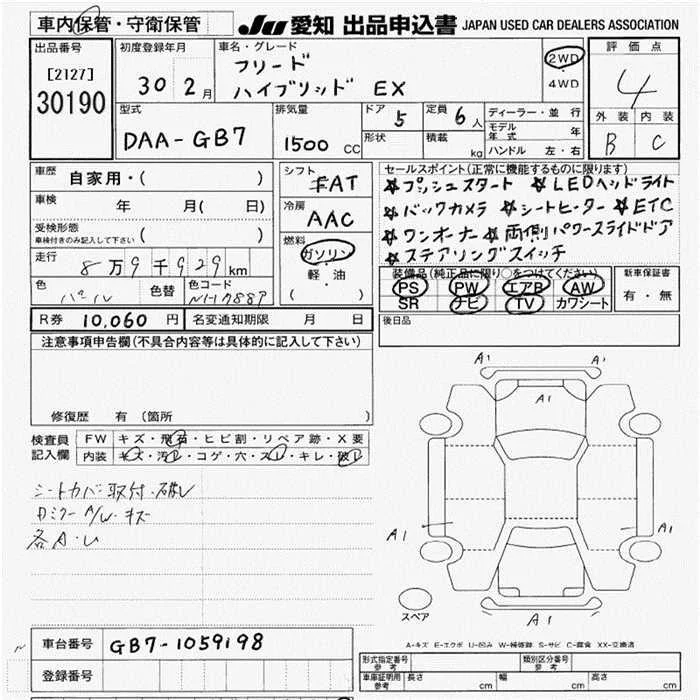 車内保管・守衛保管
JU 愛知 出品申込書 JAPAN USED CAR DEALERS ASSOCIATION
出品番号
[2127]
30190
初度登録年月
30 2月
車名・グレード
フリード
ハイブリッド EX
2WD
・
4WD
評価点
4
外装 内装
B C
型式
DAA-GB7
排気量
1500 CC
ドア 5
形状
定員 6人
積載 kg
ディーラー・並行
モデル年式 年
ハンドル 左・右
車歴
自家用・( )
車検 年 月( 日)
受検形態
車検付きのみ記入して下さい ( )
走行
8万9千929km
色 パール
色替
色コード NH788P
シフト
FAT
冷房
AAC
燃料
ガソリン
軽・油
( )
セールスポイント(正常に機能するものに限ります)
☆プッシュスタート ☆LEDヘッドライト
☆バックカメラ ☆シートヒーター ☆ETC
☆ワンオーナー ☆両側パワースライドドア
☆ステアリングスイッチ
装備品(純正品に限り○をつけてください)
PS PW エアB AW
SR ナビ TV カワシート
新車保証書
有・無
R券 10,060円
名変通知期限 月 日
後日品
注意事項申告欄(不具合内容等は具体的に記入して下さい)
修復歴 有(箇所 )
検査員
記入欄
FW キズ・飛石・ヒビ割・リペア跡・X要
内装 キズ・汚レ・コゲ・穴・スレ・キレ・破レ
シートカバー取付・破レ
Dミラー A/W・キズ
各A・U
A1 A1
A1
A1 A1
A1
スペア
A-キズ E-エクボ U-凹み W-補修跡 S-サビ C-腐食 XX-交換済
車台番号 GB7-1059198
登録番号
形式指定番号
参考
類別区分番号
参考
車庫証明用
参考
長さ cm 幅 cm 高さ cm